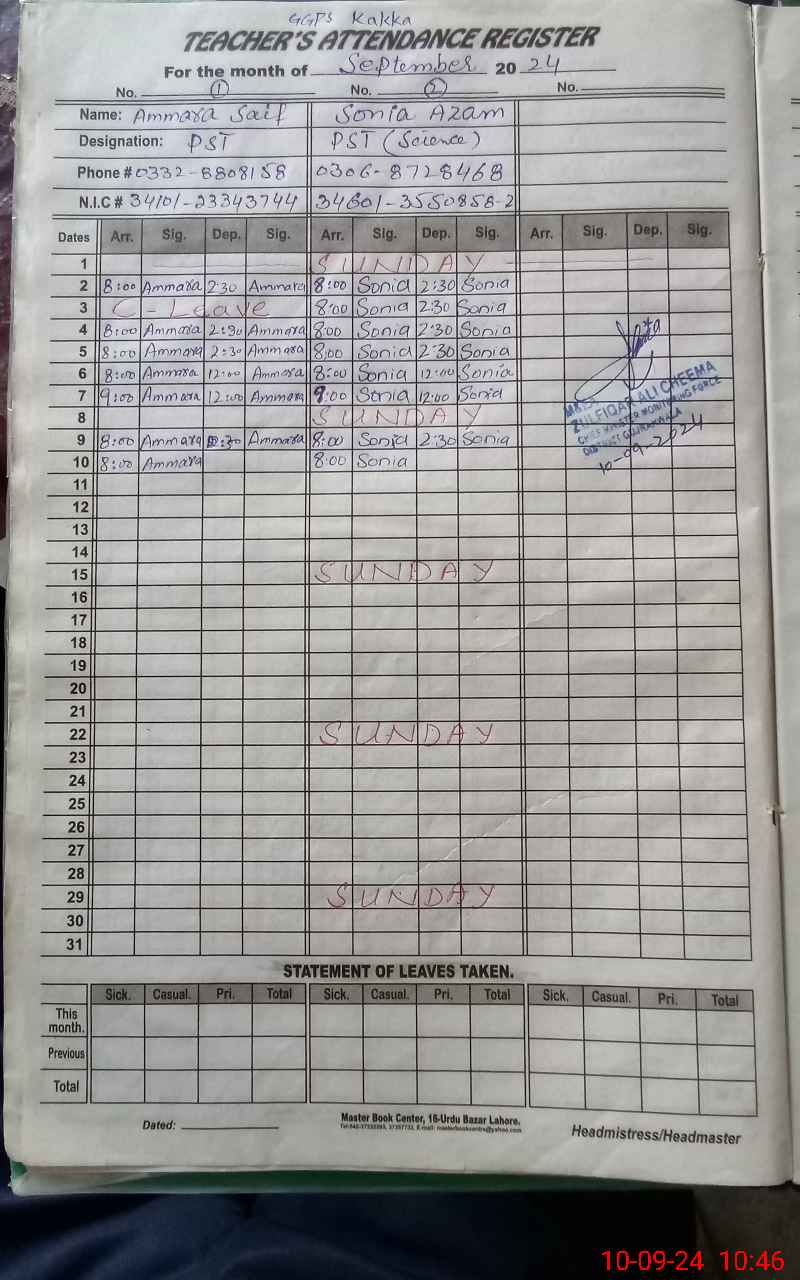 GGPS Kakka
TEACHER'S ATTENDANCE REGISTER
For the month of September 2024
No. 1 No. 2 No.
Name: Ammara Saif Sonia Azam
Designation: PST PST (Science)
Phone # 0332-8808158 0306-8728468
N.I.C # 34101-23343744 34601-3550858-2
Dates Arr. Sig. Dep. Sig. Arr. Sig. Dep. Sig. Arr. Sig. Dep. Sig.
1 SUNDAY
2 8:00 Ammara 2:30 Ammara 8:00 Sonia 2:30 Sonia
3 C-Leave 8:00 Sonia 2:30 Sonia
4 8:00 Ammara 2:30 Ammara 8:00 Sonia 2:30 Sonia
5 8:00 Ammara 2:30 Ammara 8:00 Sonia 2:30 Sonia
6 8:00 Ammara 12:00 Ammara 8:00 Sonia 12:00 Sonia
7 9:00 Ammara 12:00 Ammara 9:00 Sonia 12:00 Sonia
8 SUNDAY
9 8:00 Ammara 2:30 Ammara 8:00 Sonia 2:30 Sonia
10 8:00 Ammara 8:00 Sonia
ZULFIQAR ALI CHEEMA
CHIEF MINISTER MONITORING FORCE
DISTRICT GUJRANWALA
10-09-2024
11
12
13
14
15 SUNDAY
16
17
18
19
20
21
22 SUNDAY
23
24
25
26
27
28
29 SUNDAY
30
31
STATEMENT OF LEAVES TAKEN.
Sick. Casual. Pri. Total Sick. Casual. Pri. Total Sick. Casual. Pri. Total
This month.
Previous
Total
Dated:
Master Book Center, 16-Urdu Bazar Lahore.
Headmistress/Headmaster
10-09-24 10:46